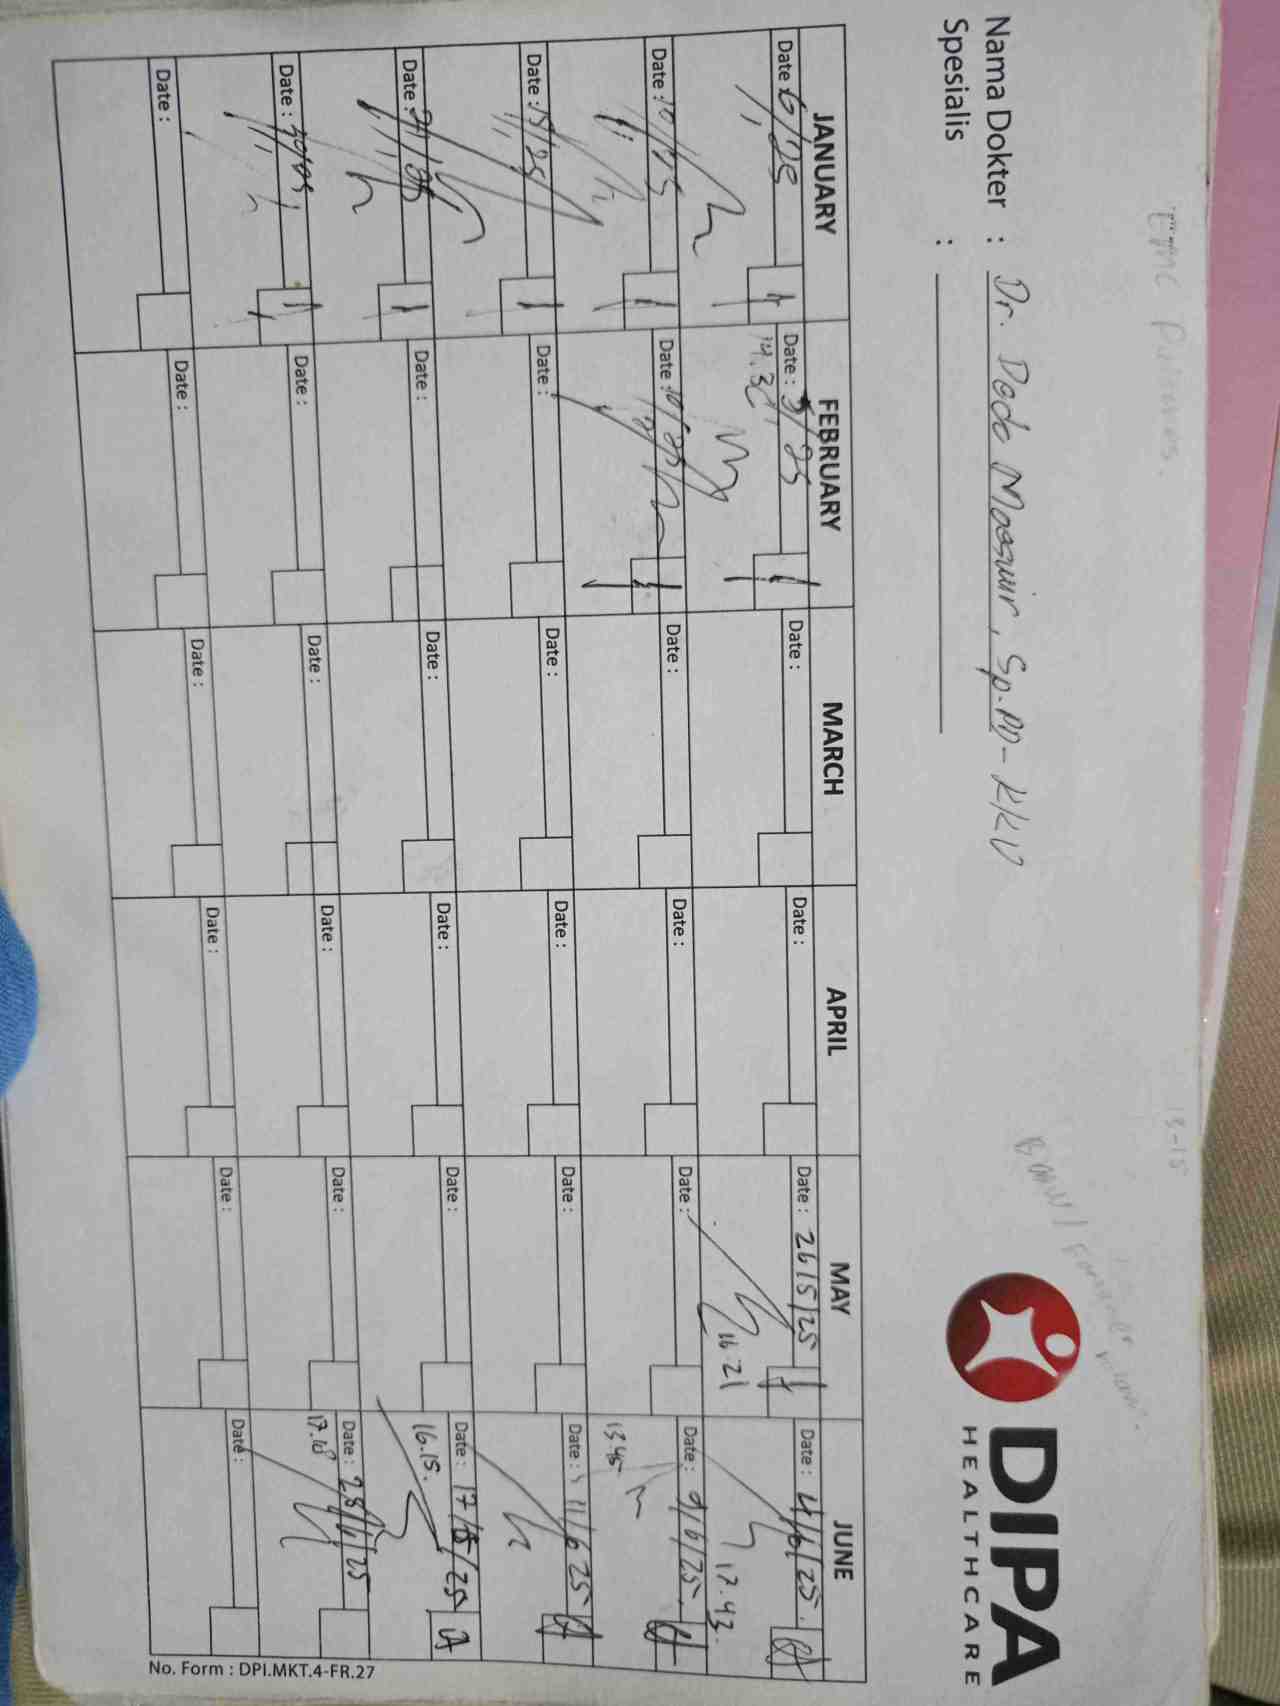 Nama Dokter : Dr. Dodo Maasuir, Sp.PD-KKV
Spesialis :
DIPA
HEALTHCARE
13-15
JANUARY FEBRUARY MARCH APRIL MAY JUNE
Date : 6/25 Date : 3/25 Date : Date : Date : 26/5/25 Date : 4/6/25.
14.30 16.21 17.43.
Date : 10/25 Date : 10/25 Date : Date : Date : Date : 9/6/25.
13.45
Date : 15/25 Date : Date : Date : Date : Date : 11/6/25
Date : 21/25 Date : Date : Date : Date : Date : 17/6/25
16.15.
Date : Date : Date : Date : Date : Date : 28/6/25
17.18
Date : Date : Date : Date : Date : Date :
No. Form : DPI.MKT.4-FR.27